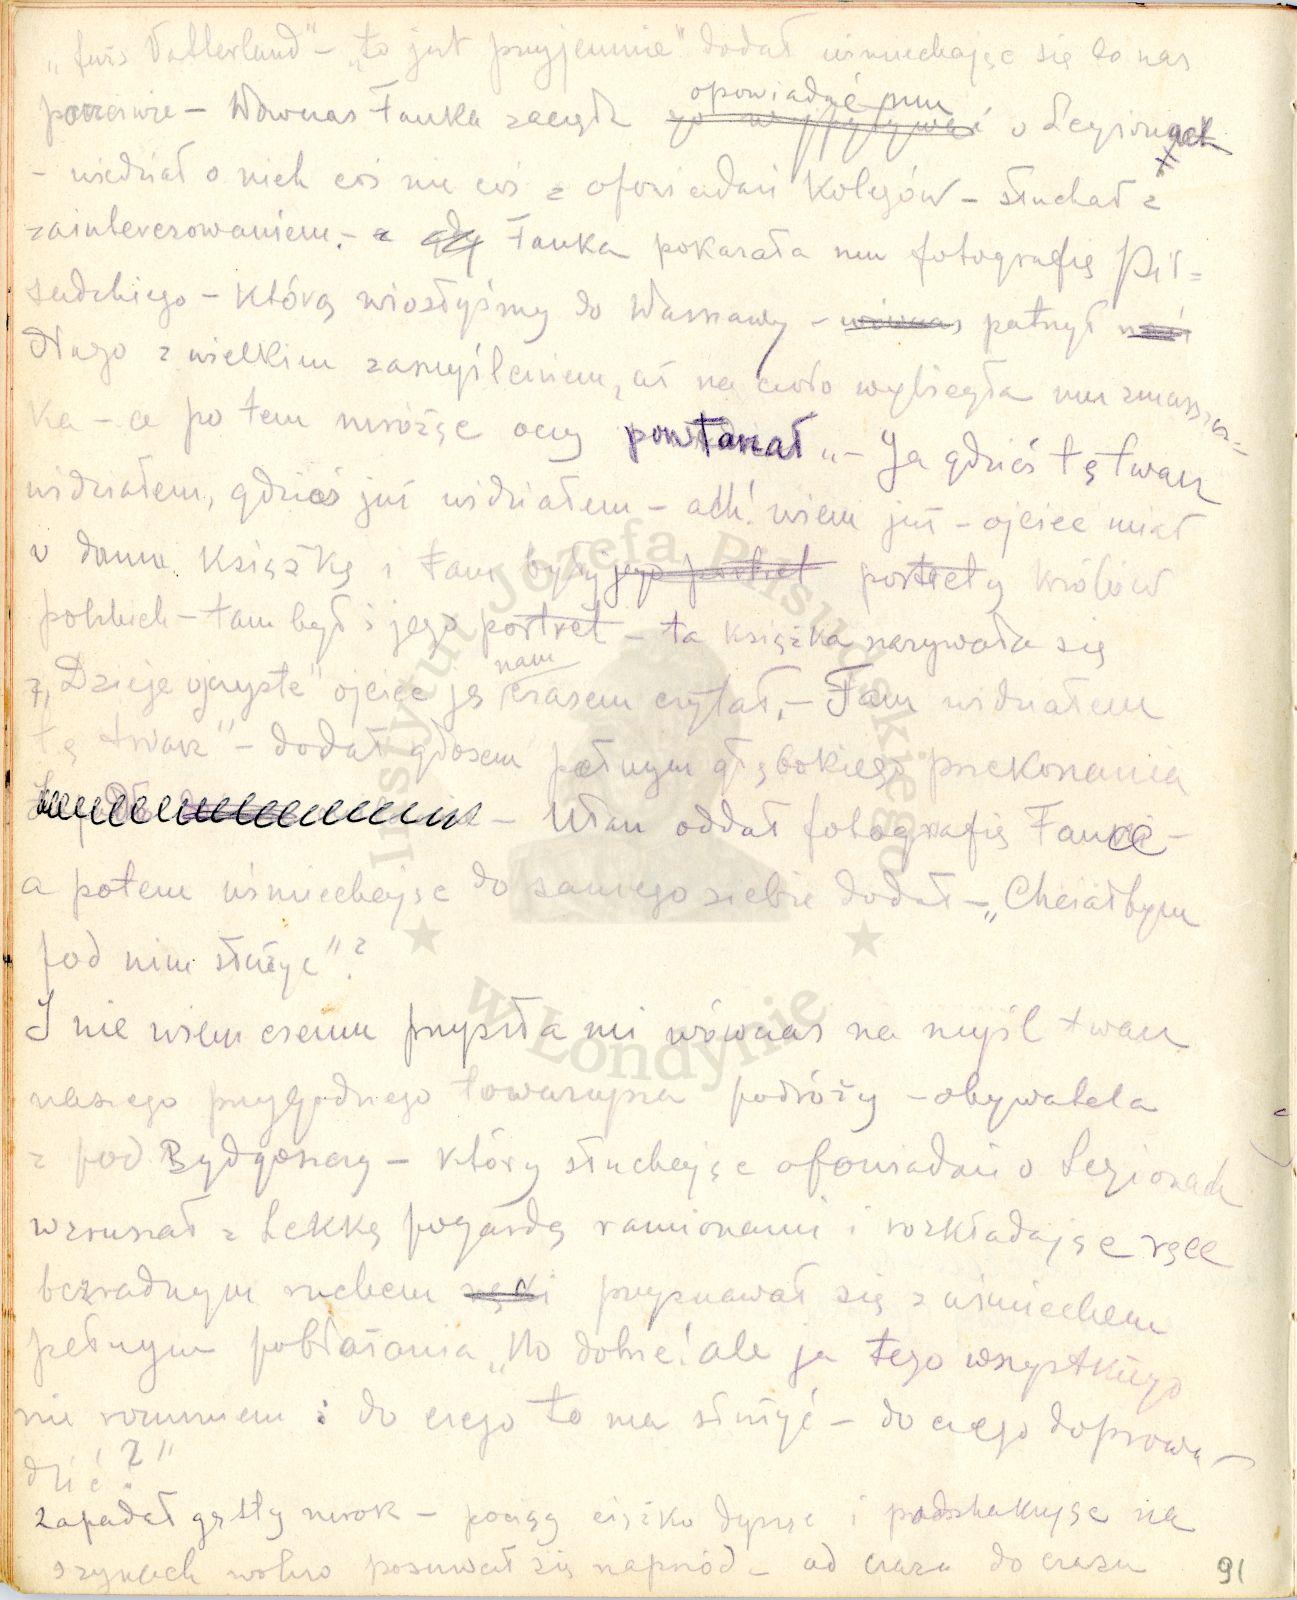 „furs Vatterland” – „to jest przyjemnie” dodał uśmiechając się do nas
poczciwie – Wówczas Fanka zaczęła opowiadać mu o Legionach
– wiedział o nich coś nie coś z opowiadań Kolegów – słuchał z
zainteresowaniem. – a gdy Fanka pokazała mu fotografię Pił=
sudskiego – którą wiozłyśmy do Warszawy – patrzył
długo z wielkim zamyśleniem, aż na czoło wybiegła mu zmarszcz=
ka – a po tem mrużąc oczy powtarzał „– Ja gdzieś tę twarz
widziałem, gdzieś już widziałem – ach! wiem już – ojciec miał
w domu książkę i tam były jego portret portrety królów
polskich – tam był i jego portret – ta książka nazywała się
„Dzieje ojczyste” ojciec ją nam czasem czytał, – Tam widziałem
tę twarz” – dodał głosem pełnym głębokiego przekonania
– Ułan oddał fotografię Fance –
a potem uśmiechając do samego siebie dodał – „Chciałbym
pod nim służyć”?
I nie wiem czemu przyszła mi wówczas na myśl twarz
naszego przygodnego towarzysza podróży – obywatela
z pod Bydgoszczy – który słuchając opowiadań o Legionach
wzruszał z lekką pogardą ramionami i rozkładając ręce
bezradnym ruchem ręki przyznawał się z uśmiechem
pełnym pobłażania „No dobrze! ale ja tego wszystkiego
nie rozumiem i do czego to ma służyć – do czego doprowa–
dzić?”
Zapadał gęsty mrok – pociąg ciężko dysząc i podskakując na
szynach wolno posuwał się naprzód – od czasu do czasu
91
Instytut Józefa Piłsudskiego
w Londynie